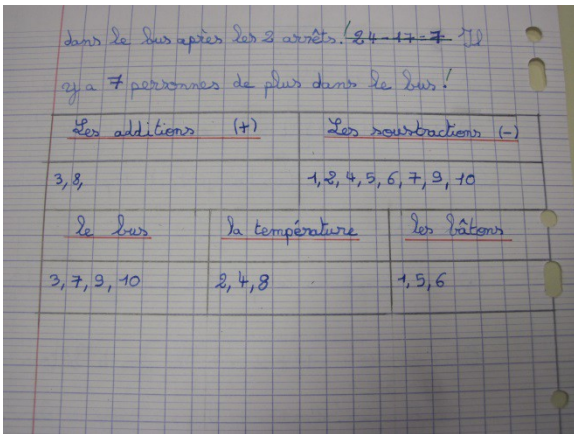 dans le bus après les 2 arrêts. (24-17=7 Il
y a 7 personnes de plus dans le bus.)
Les additions (+) Les soustractions (-)
3, 8, 1, 2, 4, 5, 6, 7, 9, 10
le bus la température les bâtons
3, 7, 9, 10 2, 4, 8 1, 5, 6